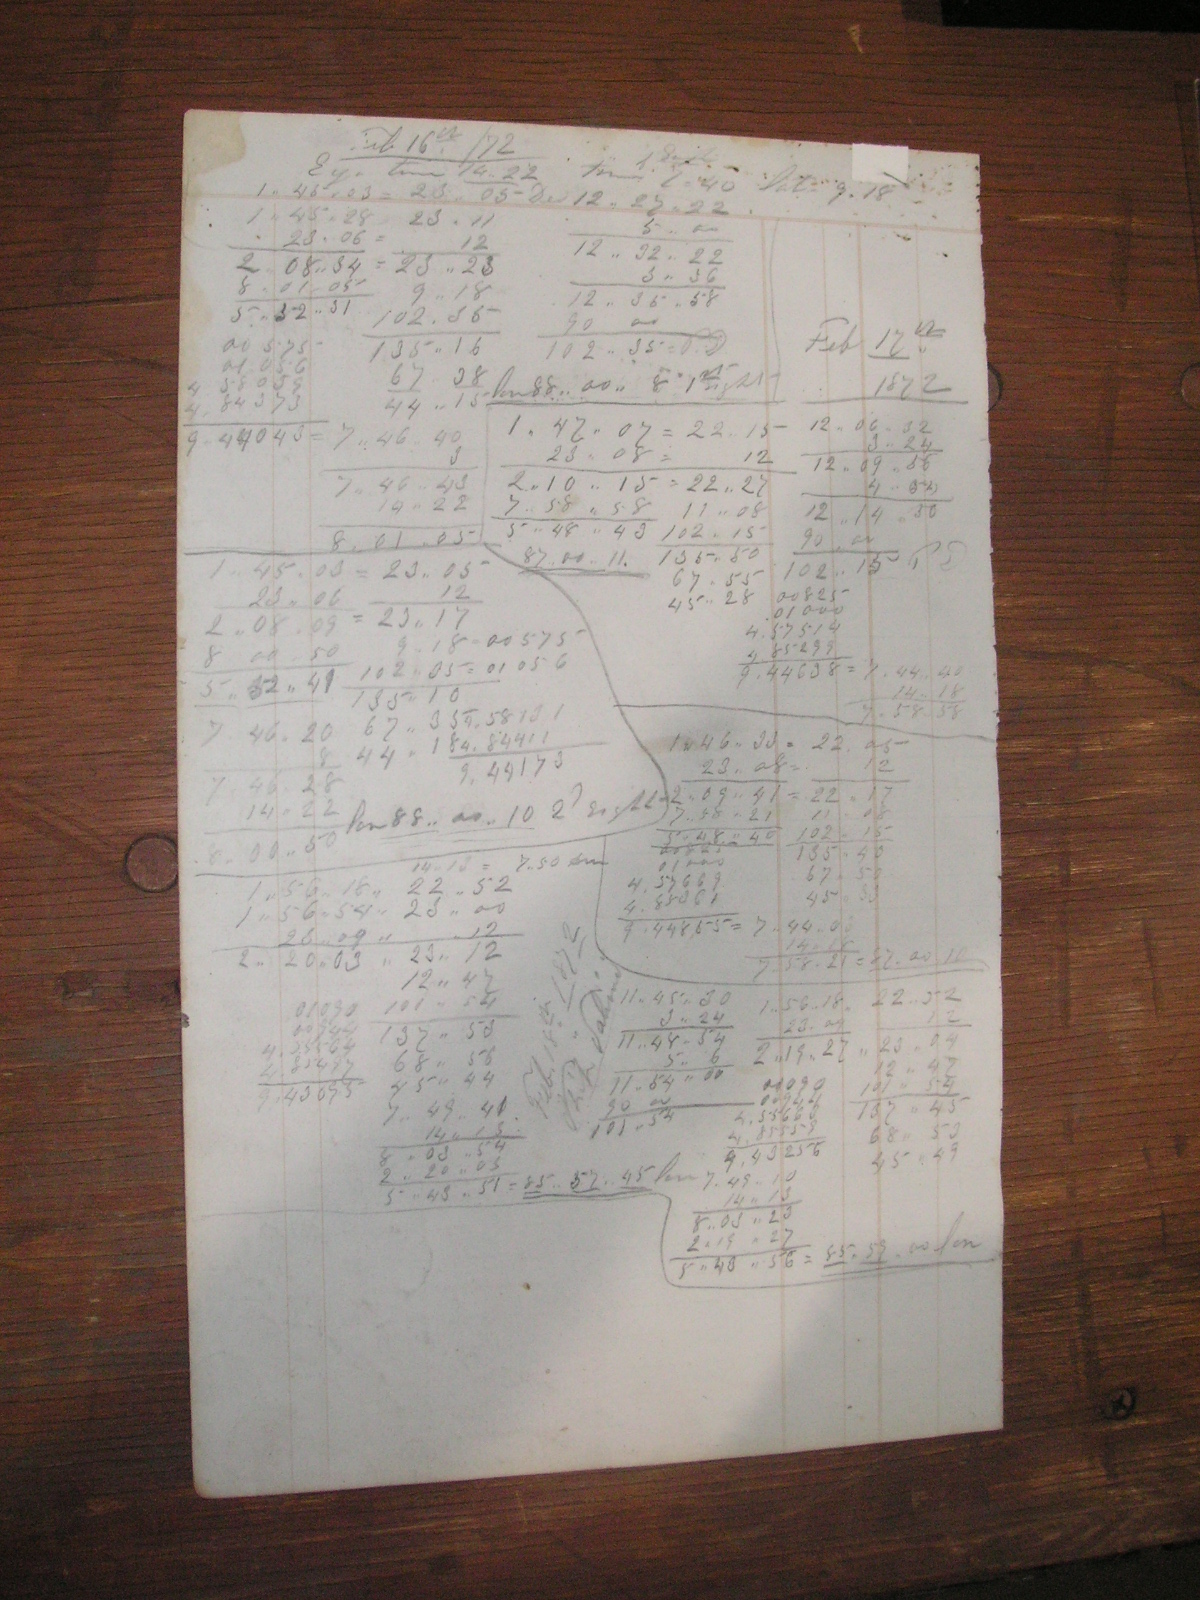 Feb 16th /72
Eq. time 14.22 time 7.40 Lat 9.18
1.45.03 = 23.05 De 12.27.22
1.45.28 23.11
23.06 = 12
2.08.34 = 23.23
8.01.05 9.18
5.32.31 102.35
135.16
67.38
44.15
5.00
12.32.22
3.36
12.35.58
90 00
102.35
00575
01056
4.58039
4.84373
9.44043 = 7.46.40
3
7.46.43
14.22
8.01.05
Lon 88..00..8 1st Sight
Feb 17th
1872
1.47.07 = 22.15
23.08 = 12
2.10.15 = 22.27
7.58.58 11.08
5.48.43 102.15
87.00.11. 135.50
67.55
45.28
12.06.32
3.24
12.09.56
4.34
12.14.30
90.00
102.15
00825
01000
4.57514
4.85299
9.44638 = 7.44.40
14.18
7.58.58
1.45.03 = 23.05
23.06 12
2.08.09 = 23.17
8 00.50 9.18 = 00575
5.32.41 102.05 = 01056
135.10
7.46.20 67.35 4.58131
8 44.18 4.84411
7.46.28 9.44173
14.22
8.00.50
Lon 88..00..10 2d Sight
1.46.33 = 22.05
23.08 = 12
2.09.41 = 22.17
7.58.21 11.08
5.48.40 102.15
135.40
67.50
01000
4.57669
9.44855 = 7.44.03
7.58.21 = 87.00.10
14.13 = 7.50 am
1.56.18 22.52
1.56.54 23.00
23.09 12
2.20.03 23.12
12.47
101.54
137.53
68.56
45.44
01090
00944
4.55564
4.85497
9.43095
7.49.41
14.13
8.03.54
2.20.03
5.43.51 = 85.57.45 Lon
Feb 18th 1872
11.45.30
3.24
11.48.54
5.6
11.54.00
90 00
101.54
1.56.18 22.52
23.09 12
2.19.27 23.04
12.47
101.54
137.45
68.53
45.49
01090
00944
4.55663
4.85558
9.43256
7.49.10
14.13
8.03.23
2.19.27
5.43.56 = 85.59.00 Lon